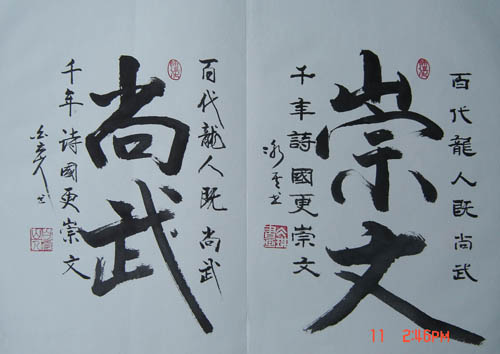 百代龍人既尚武
崇文
千年詩國更崇文
百代龍人既尚武
尚武
千年诗國更崇文
11 2:46PM